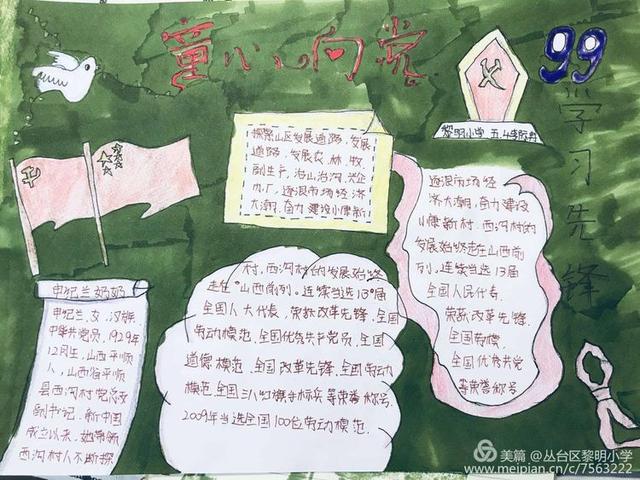 童心向党
99
学习先锋
黎明小学 五.4李欣冉
申纪兰奶奶
申纪兰,女,汉族
中共党员,1929年
12月生,山西平顺
人,山西省平顺
县西沟村党总支
副书记.新中国
成立以来,她带领
西沟村人不断探
探索山区发展道路,发展
道路,发展农、林、牧
副生产,治山治沟,兴企
办厂,逐浪市场经济
大潮,奋力建设小康新
村,西沟村的发展始终
走在“山西前列.连续当选13届
全国人大代表,荣获改革先锋,全国
劳动模范,全国优秀共产党员,全国
道德模范,全国改革先锋,全国劳动
模范,全国三八红旗手标兵等荣誉称号.
2009年当选全国100位劳动模范.
逐浪市场经
济大潮,奋力建设
小康新村.西沟村的
发展始终走在山西前
列,连续当选13届
全国人民代表.
荣获改革先锋.
全国劳模.
全国优秀共党
等荣誉称号
美篇 @丛台区黎明小学
www.meipian.cn/c/7563222